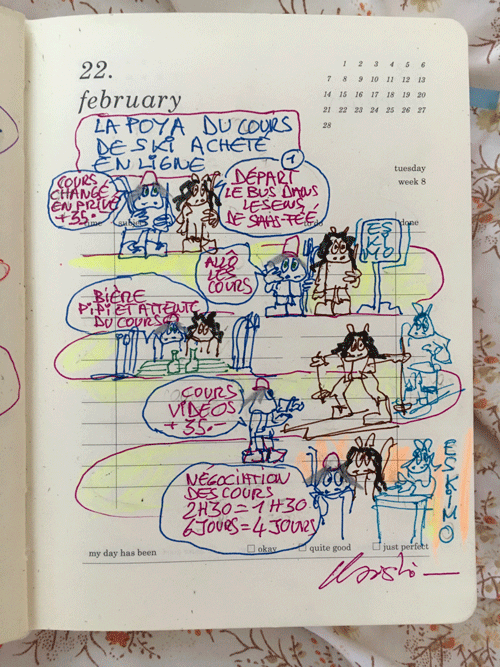 22.
february
1 2 3 4 5 6
7 8 9 10 11 12 13
14 15 16 17 18 19 20
21 22 23 24 25 26 27
28
tuesday
week 8
LA POYA DU COURS
DE SKI ACHETÉ
EN LIGNE
COURS
CHANGÉ
EN PRIVÉ
+35.-
1
DÉPART
LE BUS DANS
LE SENS
DE SAAS-FÉE
done
ALLO
LES
COURS
ESKIMO
BIÈRE
PIPI ET ATTENTE
DU COURS
COURS
VIDÉOS
+35.-
NÉGOCIATION
DES COURS
2H30=1H30
6 JOURS=4 JOURS
ESKIMO
my day has been
okay
quite good
just perfect